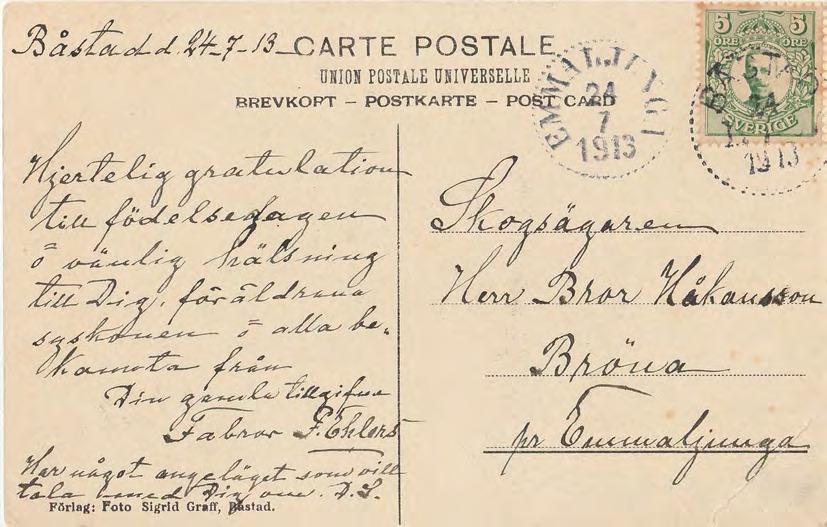 Båstad d. 24-7-13
CARTE POSTALE
UNION POSTALE UNIVERSELLE
BREVKORT – POSTKARTE – POST CARD
EMMALJUNGA
24
7
1913
5 5
ÖRE ÖRE
SVERIGE
BÅSTAD
24
7
1913
Hjertelig gratulation
till födelsedagen
o vänlig hälsning
till Dig, föräldrana
syskonen o alla be-
kanta från
Din gamla tillgifne
Farbror F. Ehlers
Har något angeläget som vill
tala med Dig om. D.S.
Skogsägaren
Herr Bror Håkansson
Bröna
pr Emmaljunga
Förlag: Foto Sigrid Graff, Båstad.